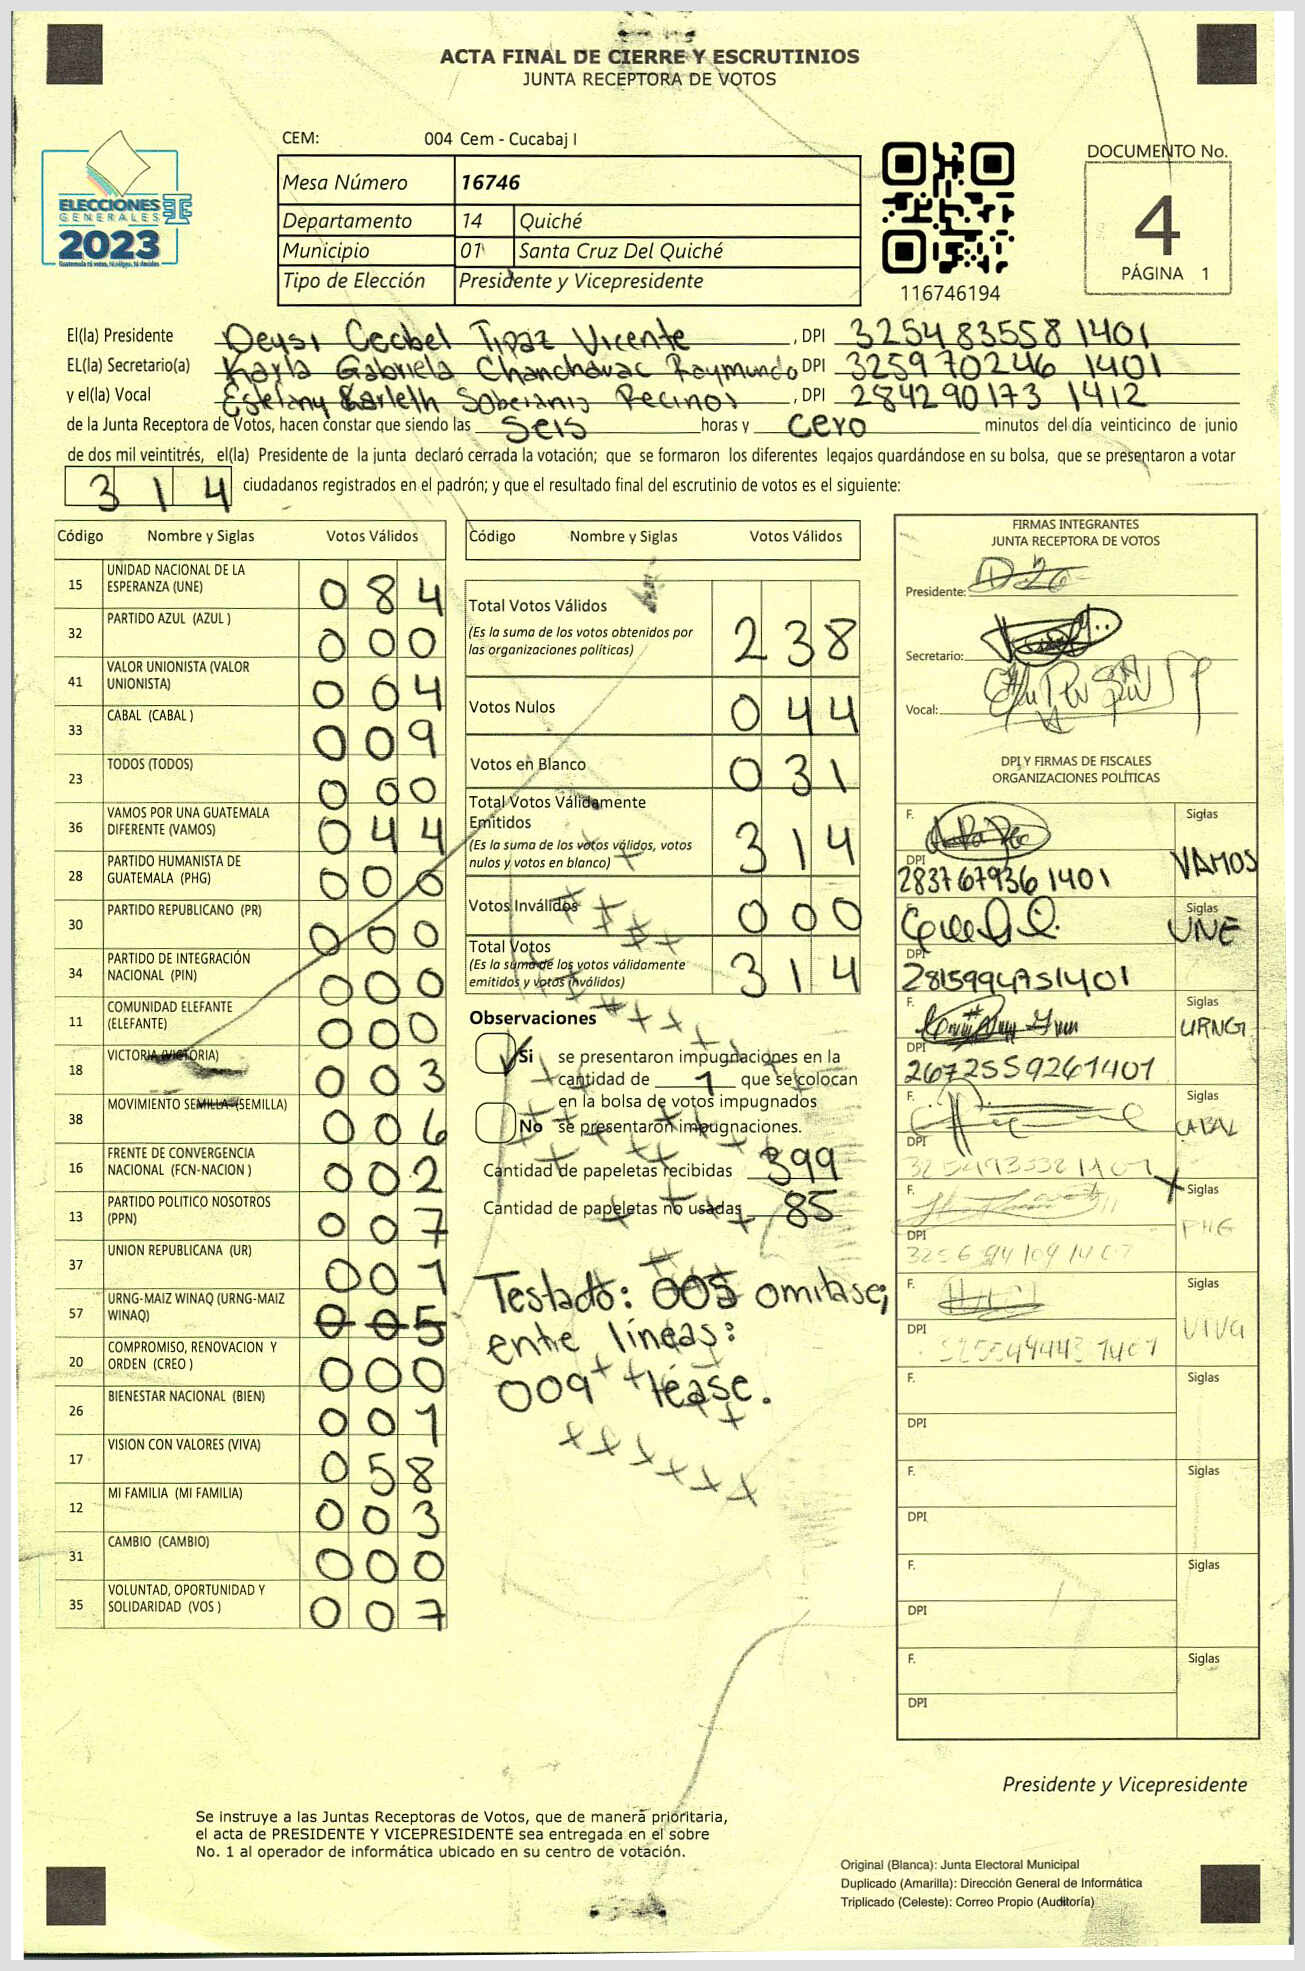 ACTA FINAL DE CIERRE Y ESCRUTINIOS
JUNTA RECEPTORA DE VOTOS
CEM: 004 Cem - Cucabaj I
Mesa Número 16746
Departamento 14 Quiché
Municipio 01 Santa Cruz Del Quiché
Tipo de Elección Presidente y Vicepresidente
ELECCIONES
GENERALES
2023
116746194
DOCUMENTO No.
4
PÁGINA 1
El(la) Presidente Deysi Cecibel Tipaz Vicente, DPI 3254835581401
EL(la) Secretario(a) Karla Gabriela Chanchavac Raymundo DPI 3259702461401
y el(la) Vocal Estefany Soberanis Recinos, DPI 2842901731412
de la Junta Receptora de Votos, hacen constar que siendo las Seis horas y cero minutos del día veinticinco de junio
de dos mil veintitrés, el(la) Presidente de la junta declaró cerrada la votación; que se formaron los diferentes legajos guardándose en su bolsa, que se presentaron a votar
314 ciudadanos registrados en el padrón; y que el resultado final del escrutinio de votos es el siguiente:
Código Nombre y Siglas Votos Válidos
15 UNIDAD NACIONAL DE LA ESPERANZA (UNE) 084
32 PARTIDO AZUL (AZUL ) 000
41 VALOR UNIONISTA (VALOR UNIONISTA) 004
33 CABAL (CABAL ) 009
23 TODOS (TODOS) 000
36 VAMOS POR UNA GUATEMALA DIFERENTE (VAMOS) 044
28 PARTIDO HUMANISTA DE GUATEMALA (PHG) 000
30 PARTIDO REPUBLICANO (PR) 000
34 PARTIDO DE INTEGRACIÓN NACIONAL (PIN) 000
11 COMUNIDAD ELEFANTE (ELEFANTE) 000
18 VICTORIA (VICTORIA) 003
38 MOVIMIENTO SEMILLA (SEMILLA) 006
16 FRENTE DE CONVERGENCIA NACIONAL (FCN-NACION ) 002
13 PARTIDO POLITICO NOSOTROS (PPN) 007
37 UNION REPUBLICANA (UR) 001
57 URNG-MAIZ WINAQ (URNG-MAIZ WINAQ) 005
20 COMPROMISO, RENOVACION Y ORDEN (CREO ) 000
26 BIENESTAR NACIONAL (BIEN) 001
17 VISION CON VALORES (VIVA) 058
12 MI FAMILIA (MI FAMILIA) 003
31 CAMBIO (CAMBIO) 000
35 VOLUNTAD, OPORTUNIDAD Y SOLIDARIDAD (VOS ) 007
Código Nombre y Siglas Votos Válidos
Total Votos Válidos 238
(Es la suma de los votos obtenidos por
las organizaciones políticas)
Votos Nulos 044
Votos en Blanco 031
Total Votos Válidamente
Emitidos 314
(Es la suma de los votos válidos, votos
nulos y votos en blanco)
Votos Inválidos 000
Total Votos 314
(Es la suma de los votos válidamente
emitidos y votos inválidos)
Observaciones
Si se presentaron impugnaciones en la
cantidad de 1 que se colocan
en la bolsa de votos impugnados
No se presentaron impugnaciones.
Cantidad de papeletas recibidas 399
Cantidad de papeletas no usadas 85
Testado: 005 omitase;
entre líneas:
009 léase.
FIRMAS INTEGRANTES
JUNTA RECEPTORA DE VOTOS
Presidente:
Secretario:
Vocal:
DPI Y FIRMAS DE FISCALES
ORGANIZACIONES POLÍTICAS
F. Siglas
DPI VAMOS
2837679361401
Siglas
UNE
DPI
2815994751401
F. Siglas
URNG
DPI
2672559261401
F. Siglas
CABAL
DPI
F. Siglas
PHG
DPI
F. Siglas
VIVA
DPI
F. Siglas
DPI
F. Siglas
DPI
F. Siglas
DPI
F. Siglas
DPI
Presidente y Vicepresidente
Se instruye a las Juntas Receptoras de Votos, que de manera prioritaria,
el acta de PRESIDENTE Y VICEPRESIDENTE sea entregada en el sobre
No. 1 al operador de informática ubicado en su centro de votación.
Original (Blanca): Junta Electoral Municipal
Duplicado (Amarilla): Dirección General de Informática
Triplicado (Celeste): Correo Propio (Auditoría)